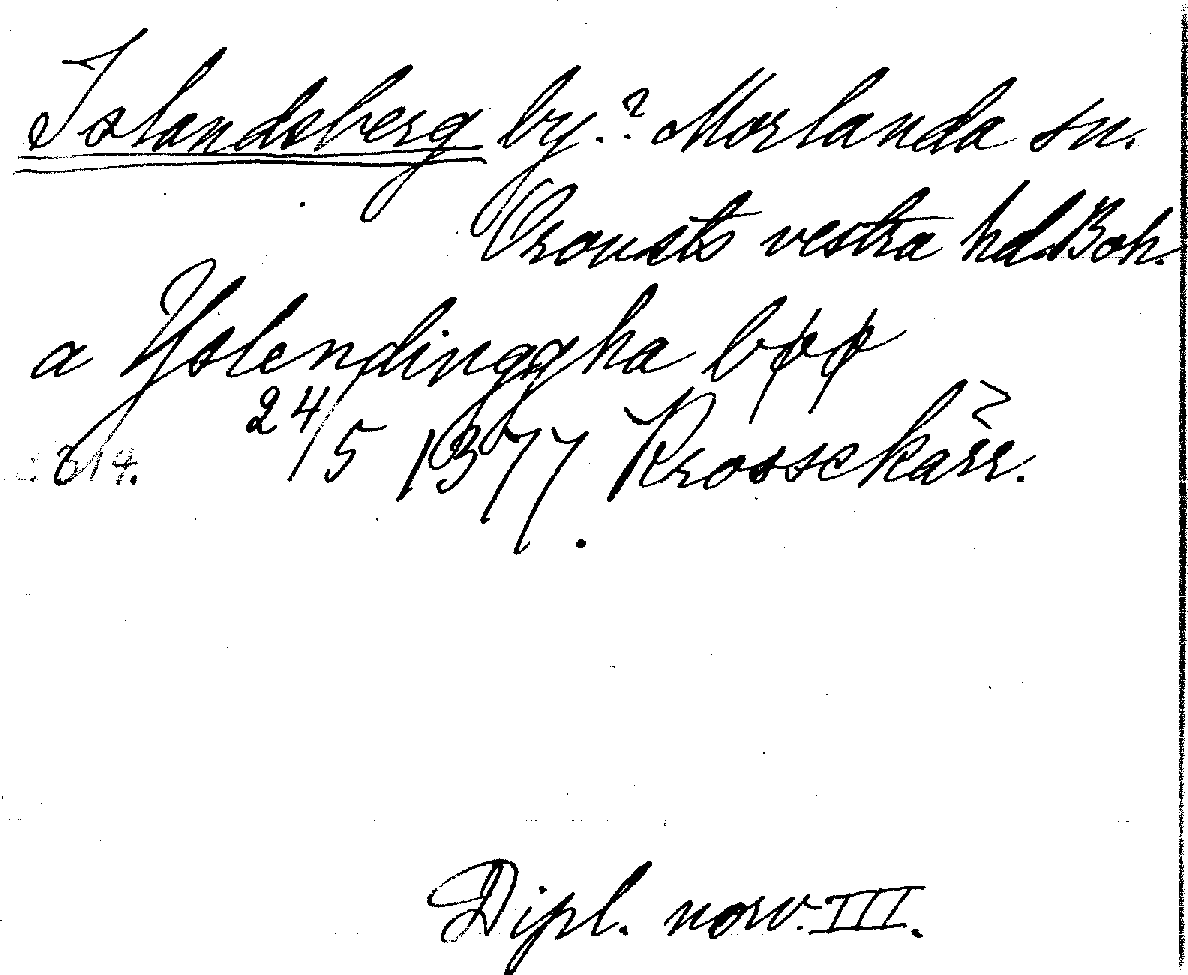 Islandsberg by.? Morlanda sn.
Orousts vestra hd. Boh.
a Yslendinggha bøø
24/5 1377 Krossekärr.
Dipl. norv. III.